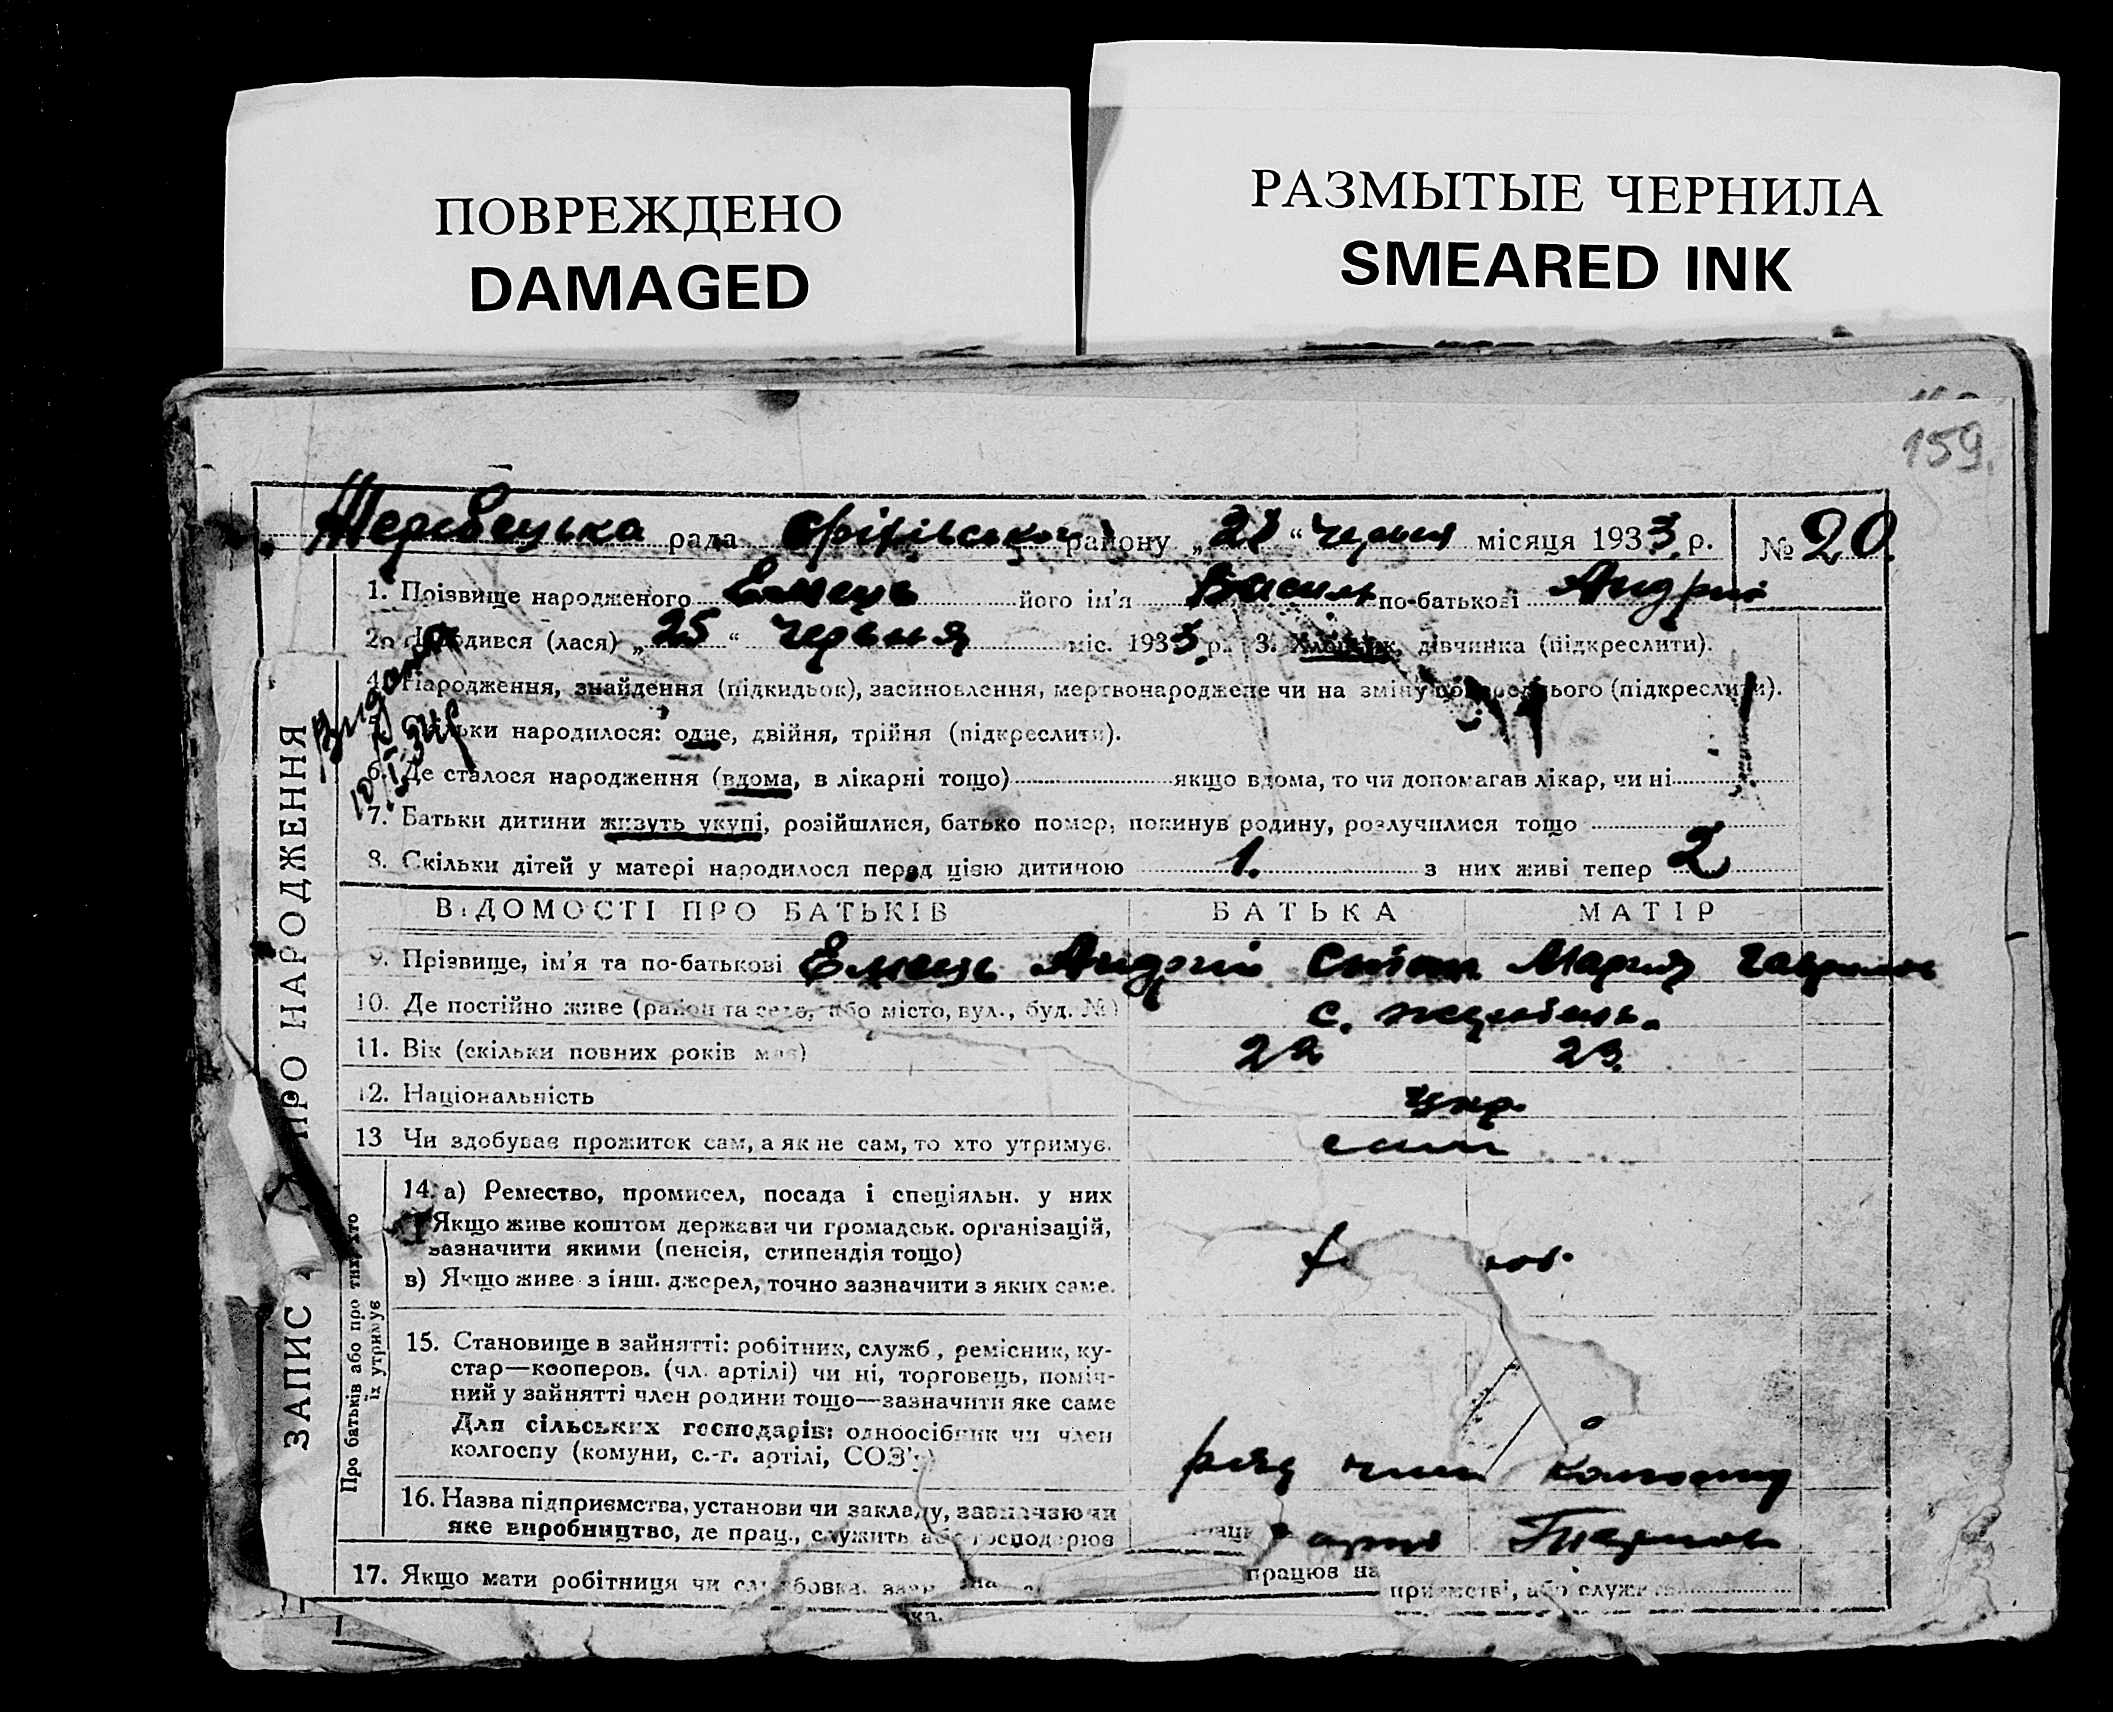 ПОВРЕЖДЕНО
DAMAGED
РАЗМЫТЫЕ ЧЕРНИЛА
SMEARED INK
159.
Жеребецька рада Оріхівського району „27“ Червня місяця 1933 р. № 20.
1. Прізвище народженого Ємець його ім'я Василь по-батькові Андрій
2. Народився (лася) „25“ Червня міс. 1933 р. 3. Хлопчик, дівчинка (підкреслити).
4. Народження, знайдення (підкидьок), засиновлення, мертвонароджене чи на зміну попереднього (підкреслити).
5. Скільки народилося: одне, двійня, трійня (підкреслити).
6. Де сталося народження (вдома, в лікарні тощо) якщо вдома, то чи допомагав лікар, чи ні
7. Батьки дитини живуть укупі, розійшлися, батько помер, покинув родину, розлучилися тощо
8. Скільки дітей у матері народилося перед цією дитиною 1. з них живі тепер 2
ЗАПИС ПРО НАРОДЖЕННЯ
ВІДОМОСТІ ПРО БАТЬКІВ БАТЬКА МАТІР
9. Прізвище, ім'я та по-батькові Ємець Андрій Мария
10. Де постійно живе (район та село, або місто, вул., буд. №) с. Жеребець.
11. Вік (скільки повних років має) 22 23.
12. Національність укр.
13 Чи здобуває прожиток сам, а як не сам, то хто утримує. сами
Про батьків або про тих, хто
їх утримує
14. а) Ремество, промисел, посада і спеціяльн. у них
Якщо живе коштом держави чи громадськ. організацій,
зазначити якими (пенсія, стипендія тощо)
в) Якщо живе з інш. джерел, точно зазначити з яких саме.
15. Становище в зайнятті: робітник, служб., ремісник, ку-
стар—кооперов. (чл. артілі) чи ні, торговець, поміч-
ний у зайнятті член родини тощо—зазначити яке саме
Для сільських господарів: одноосібник чи член
колгоспу (комуни, с.-г. артілі, СОЗ'у)
член колгоспу
16. Назва підприємства, установи чи закладу, зазначаючи
яке виробництво, де прац., служить або господарює
17. Якщо мати робітниця чи службовка,
працює на
приємстві, або служить